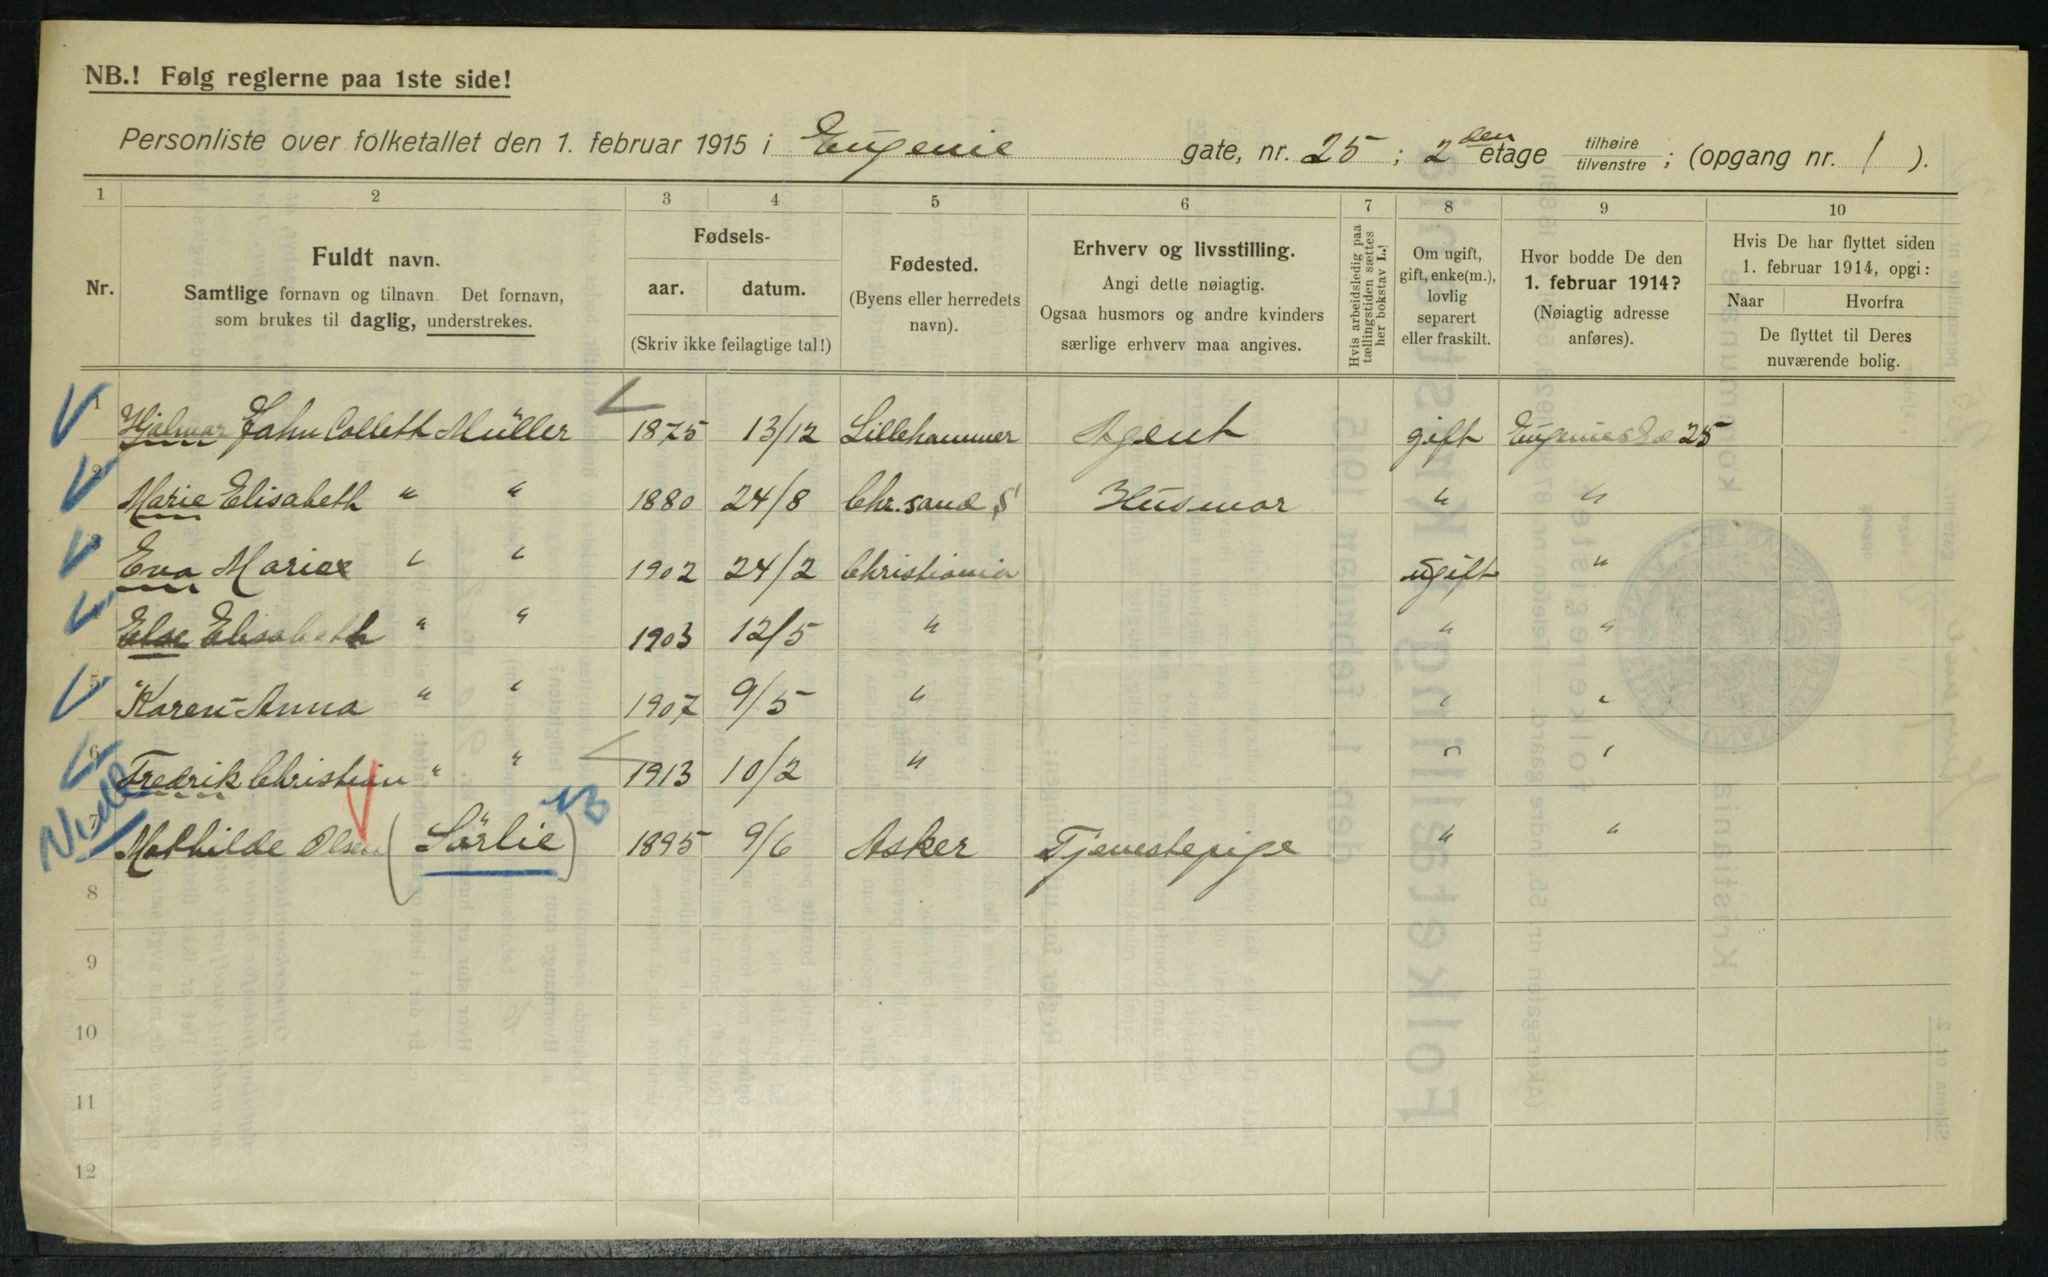 NB.! Følg reglerne paa 1ste side!
Personliste over folketallet den 1. februar 1915 i Eugenie gate, nr. 25 ; 2den etage tilhøire / tilvenstre ; (opgang nr. 1 ).
1 2 3 4 5 6 7 8 9 10
Nr.
Fuldt navn.
Samtlige fornavn og tilnavn Det fornavn,
som brukes til daglig, understrekes.
Fødsels-
aar. datum.
(Skriv ikke feilagtige tal!)
Fødested.
(Byens eller herredets
navn).
Erhverv og livsstilling.
Angi dette nøiagtig.
Ogsaa husmors og andre kvinders
særlige erhverv maa angives.
Hvis arbeidsledig paa
tællingstiden sættes
her bokstav L.!
Om ugift,
gift, enke(m.),
lovlig
separert
eller fraskilt.
Hvor bodde De den
1. februar 1914?
(Nøiagtig adresse
anføres).
Hvis De har flyttet siden
1. februar 1914, opgi:
Naar Hvorfra
De flyttet til Deres
nuværende bolig.
1 Hjalmar Jahn Colleth Müller 1875 13/12 Lillehammer Agent gift Eugenies 25
2 Marie Elisabeth " " 1880 24/8 Chr.sand S Husmor " "
3 Eva Marie " " 1902 24/2 Christiania ugift "
Else Elisabeth " " 1903 12/5 " " "
5 Karen-Anna " " 1907 9/5 " " "
6 Fredrik Christian " " 1913 10/2 " " "
7 Mathilde Olsen (Sörlie) 1895 9/6 Asker Tjenestepige " "
8
9
10
11
12